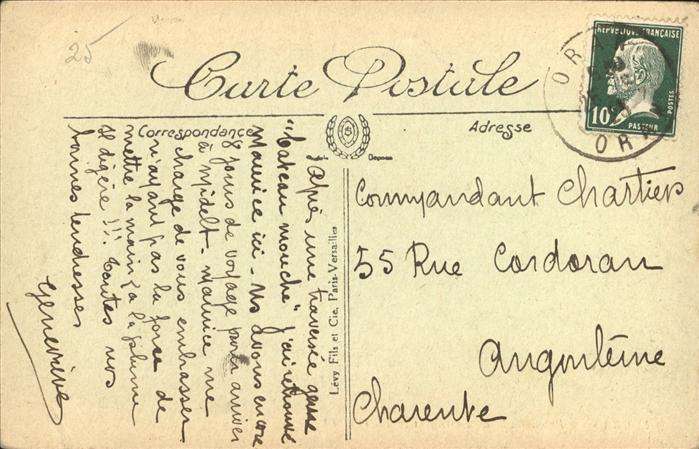 25
Carte Postale
RÉPUBLIQUE FRANÇAISE
10
POSTES
PASTEUR
OR
ORA
Correspondance
Adresse
Après une traversée genre
"bateau mouche" j'ai retrouvé
Maurice ici - Ns avons encore
8 jours de voyage pour arriver
à Midelt - Maurice me
charge de vous embrasser
n'ayant pas la force de
mettre la main à la plume
digère !!! Toutes nos
bonnes tendresses
Geneviève
Lévy Fils et Cie, Paris-Versailles
Commandant Chartier
55 Rue Cordoran
Angoulême
Charente